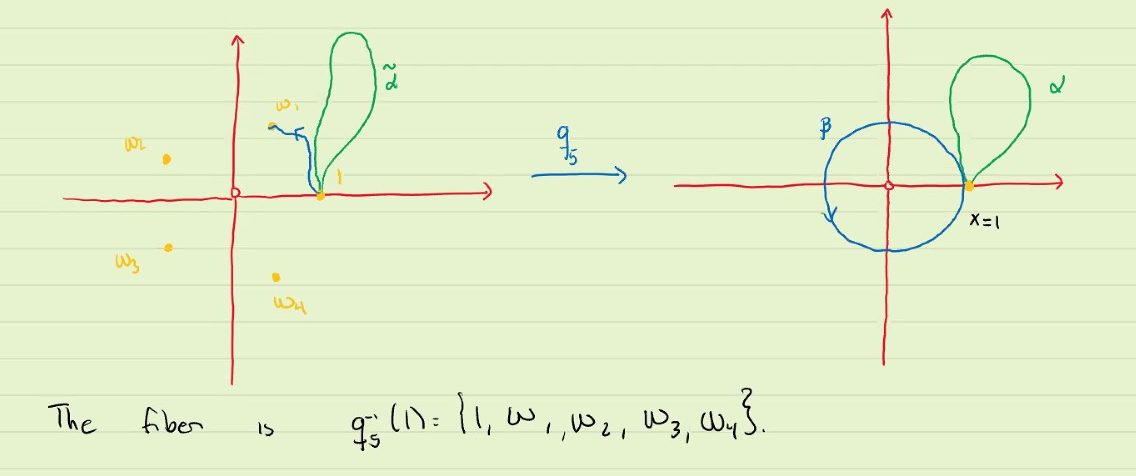 ω₁
α̃
ω₂
1
ω₃
ω₄
q₅
β
α
x=1
The fiber is q₅⁻¹(1) = {1, ω₁, ω₂, ω₃, ω₄}.